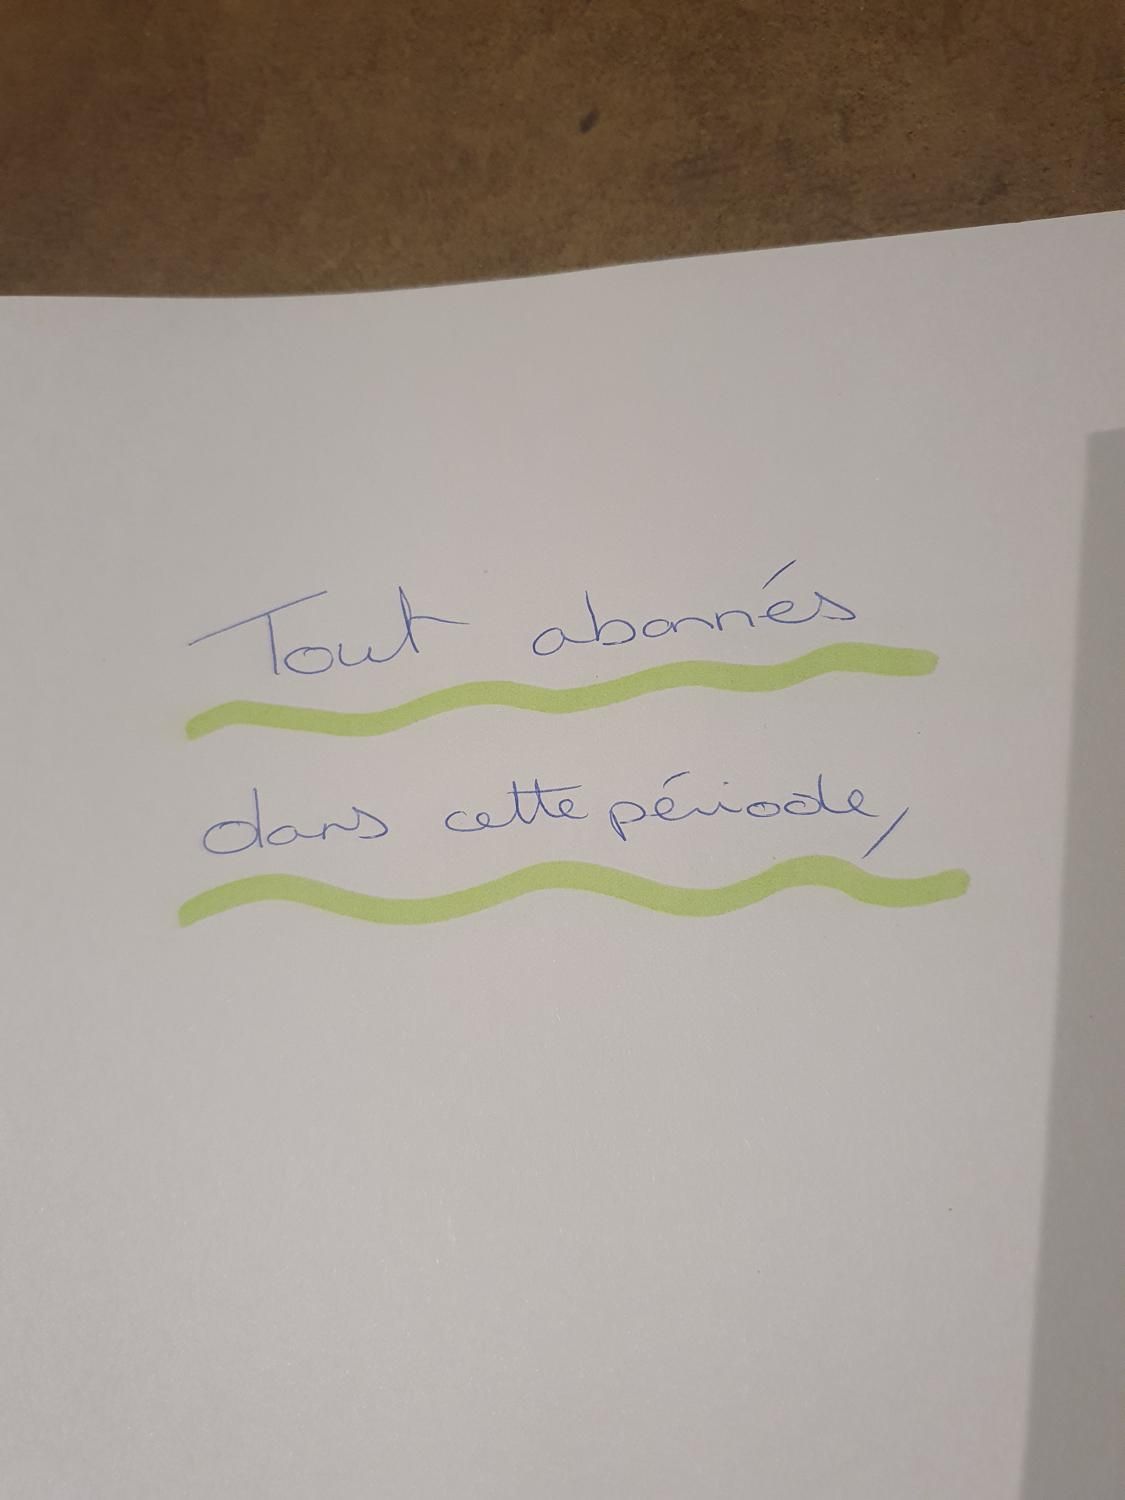 Tout abonnés
dans cette période,